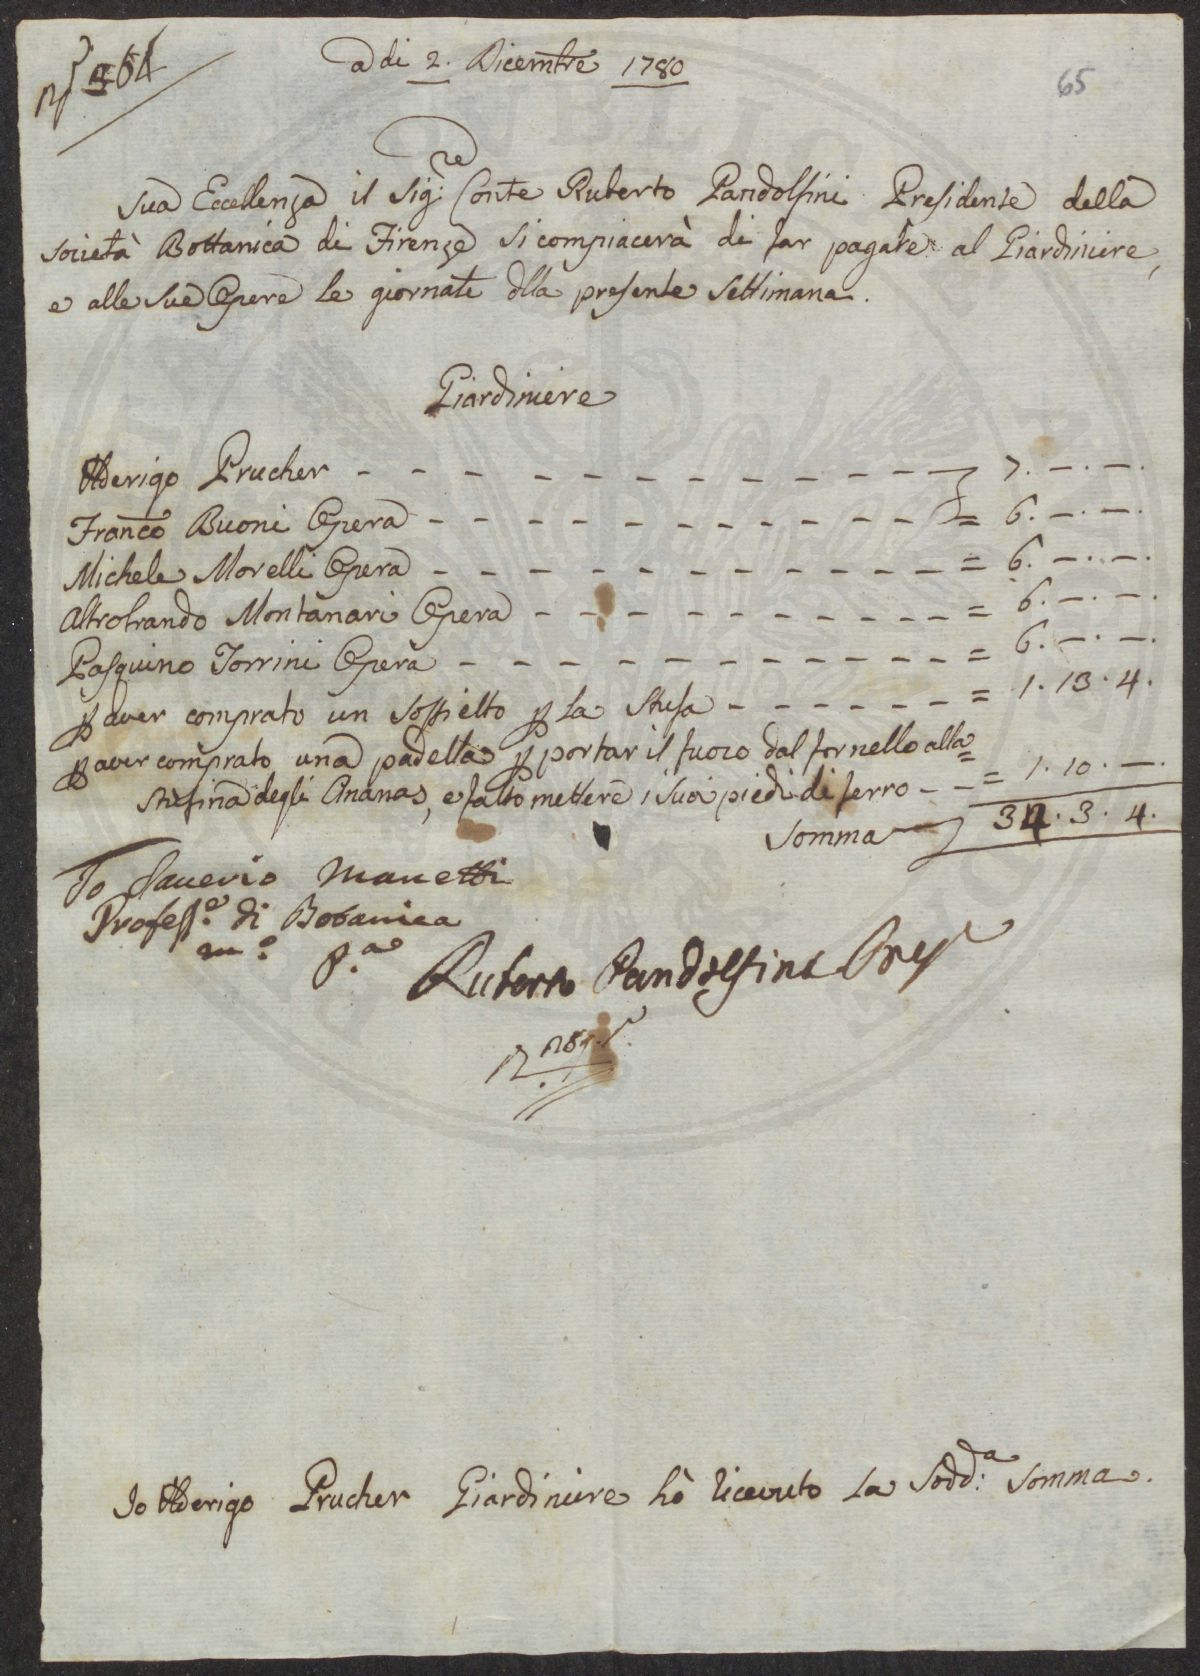 a di 2. Dicembre 1780
65
Sua Eccellenza il Sig:re Conte Ruberto Pandolfini Presidente della
società Bottanica di Firenze si compiacerà di far pagare al Giardiniere,
e alle sue Opere le giornate dlla presente settimana.
Giardiniere
Prucher - - - - - - - - - - - 7. —. —.
Franco Buoni Opera - - - - - - - - - - = 6. —. —.
Michele Morelli Opera - - - - - - - - - - = 6. —. —.
Montanari Opera - - - - - - - - - = 6. —. —.
Pasquino Torrini Opera - - - - - - - - - - = 6. —. —.
p aver comprato un soffietto p la Stufa - - - - - - = 1. 13. 4.
p aver comprato una padella p portar il fuoco dal fornello alla=
stufina degli Ananas, e fatto mettere i suoi piedi di ferro - - = 1. 10. —.
Somma 34. 3. 4.
Io Saverio Manetti
Profess.e di Botanica
m.o p.a
Ruberto Pandolfini Pres
Io Prucher Giardiniere hò ricevuto la Sodd:a somma.